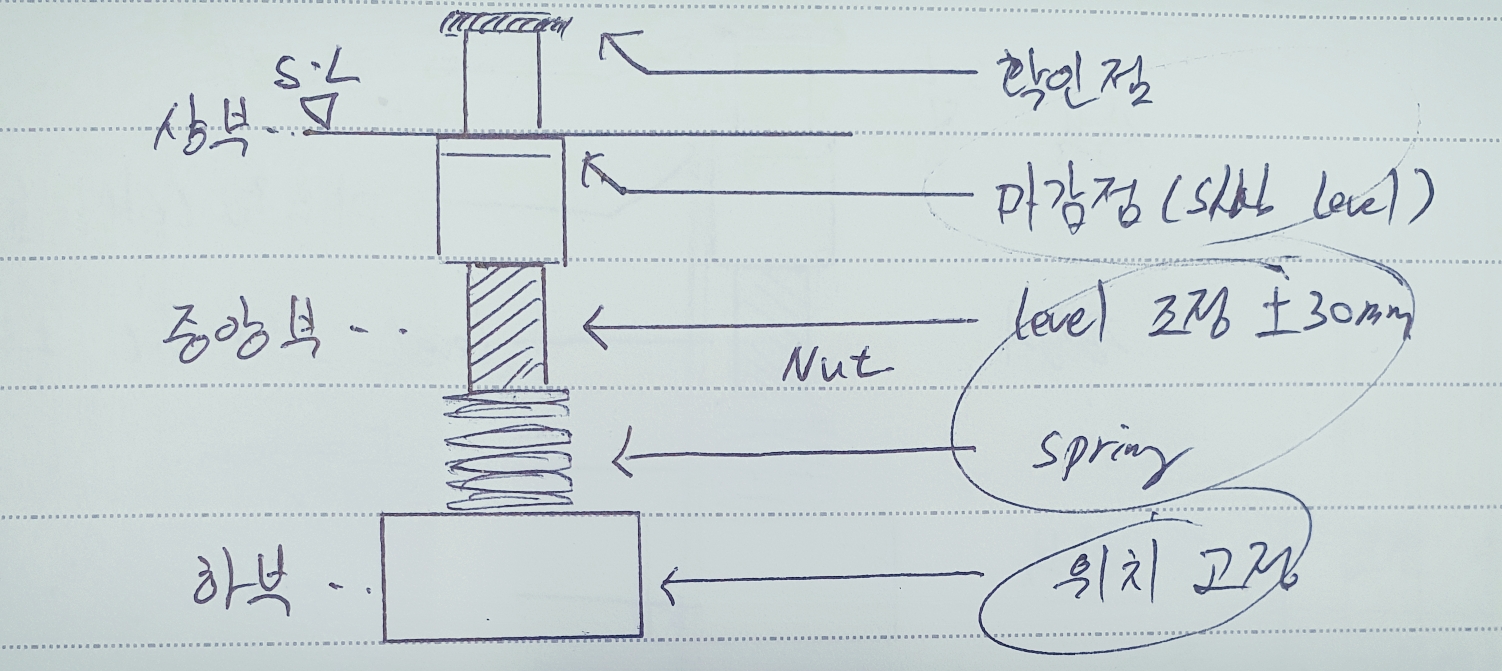 확인점
S.L
상부
마감점 (Slab level)
중앙부
level 조정 ±30mm
Nut
spring
하부
위치 고정